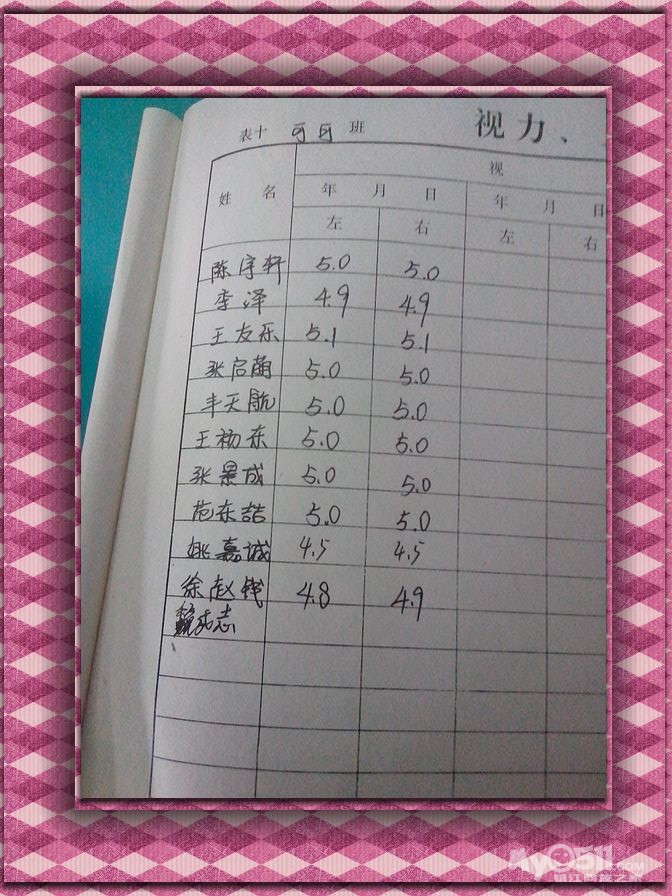 表十 可可 班 视力、
视
姓 名 年 月 日 年 月 日
左 右 左 右
陈宇轩 5.0 5.0
李泽 4.9 4.9
王友乐 5.1 5.1
张启萌 5.0 5.0
丰天航 5.0 5.0
王杨东 5.0 5.0
张景成 5.0 5.0
范东喆 5.0 5.0
姚嘉诚 4.5 4.5
徐赵钱 4.8 4.9
志
My0511.COM